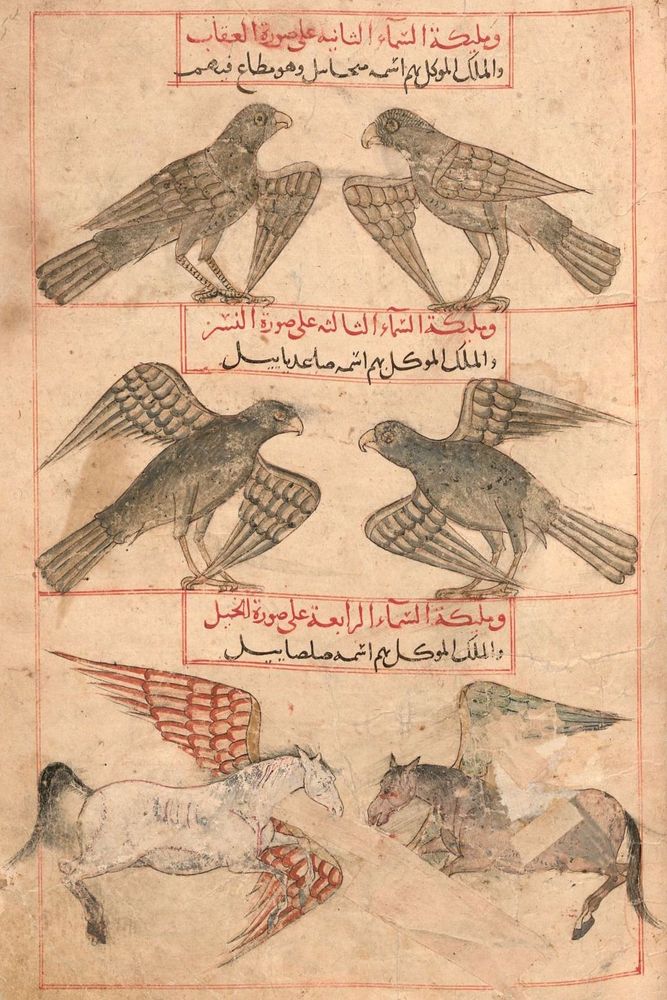 ومليكة السماء الثانية على صورة العقاب
والملك الموكل بهم اسمه ميخاييل وهو مطاع فيهم
ومليكة السماء الثالثة على صورة النسر
والملك الموكل بهم اسمه صاعدياييل
ومليكة السماء الرابعة على صورة الخيل
والملك الموكل بهم اسمه صلصاييل